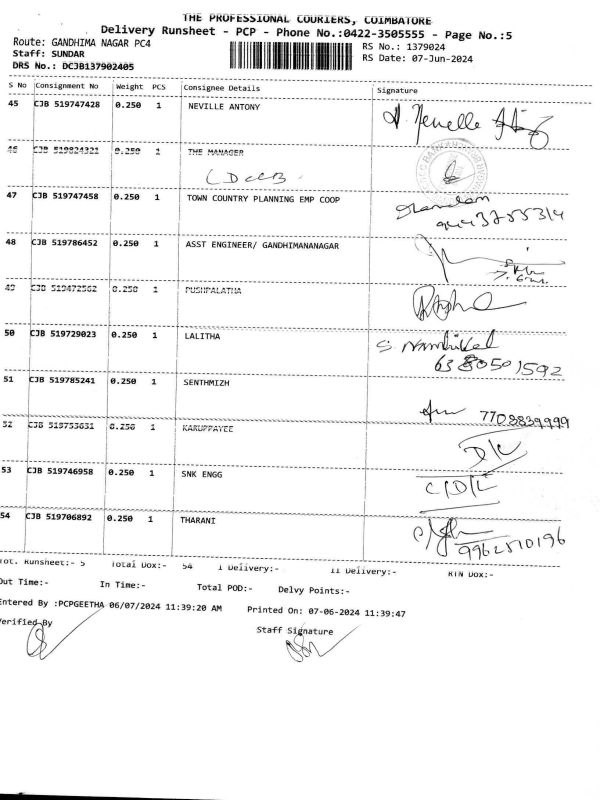 THE PROFESSIONAL COURIERS, COIMBATORE
Delivery Runsheet - PCP - Phone No.:0422-3505555 - Page No.:5
Route: GANDHIMA NAGAR PC4 RS No.: 1379024
Staff: SUNDAR RS Date: 07-Jun-2024
DRS No.: DCJB137902405
S No Consignment No Weight PCS Consignee Details Signature
45 CJB 519747428 0.250 1 NEVILLE ANTONY
46 CJB 519824321 0.250 1 THE MANAGER
47 CJB 519747458 0.250 1 TOWN COUNTRY PLANNING EMP COOP
48 CJB 519786452 0.250 1 ASST ENGINEER/ GANDHIMANANAGAR
49 CJB 519472562 0.250 1 PUSHPALATHA
50 CJB 519729023 0.250 1 LALITHA
6380501592
51 CJB 519785241 0.250 1 SENTHMIZH
7708839999
52 CJB 519753631 0.250 1 KARUPPAYEE
D/L
53 CJB 519746958 0.250 1 SNK ENGG
C/D/L
54 CJB 519706892 0.250 1 THARANI
9962510196
Tot. Runsheet:- 5 Total Dox:- 54 I Delivery:- II Delivery:- RTN Dox:-
Out Time:- In Time:- Total POD:- Delvy Points:-
Entered By :PCPGEETHA 06/07/2024 11:39:20 AM Printed On: 07-06-2024 11:39:47
Verified By Staff Signature